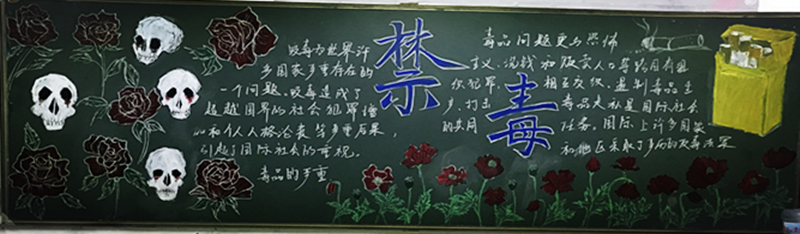 吸毒为世界许
多国家多重存在的
一个问题。吸毒造成了
超越国界的社会犯罪
和个人人格沦丧等多重后果,
引起了国际社会的重视。
毒品的多重
禁
毒
毒品问题更与恐怖
主义、洗钱和贩卖人口等跨国有组
织犯罪 相互交织。遏制毒品
打击毒品 是国际社会
的共同 任务。国际上许多国家
和地区采取了